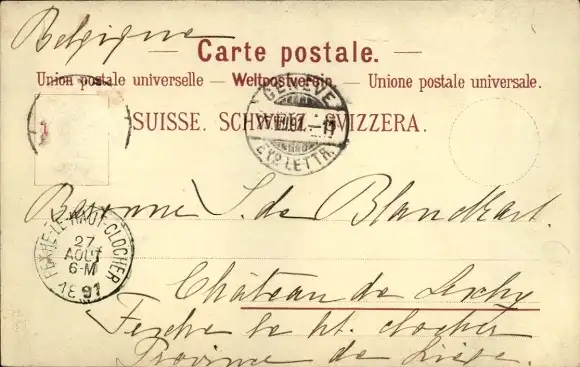 Belgique
Carte postale.
Union postale universelle — Weltpostverein. — Unione postale universale.
SUISSE. SCHWEIZ. SVIZZERA.
GENEVE
EXP. LETTR.
Baronne S. de Blanckart.
FEXHE-LE-HAUT-CLOCHER
27
AOUT
6-M
1891
Château de Lexhy
Fexhe le ht. clocher
Province de Liège.